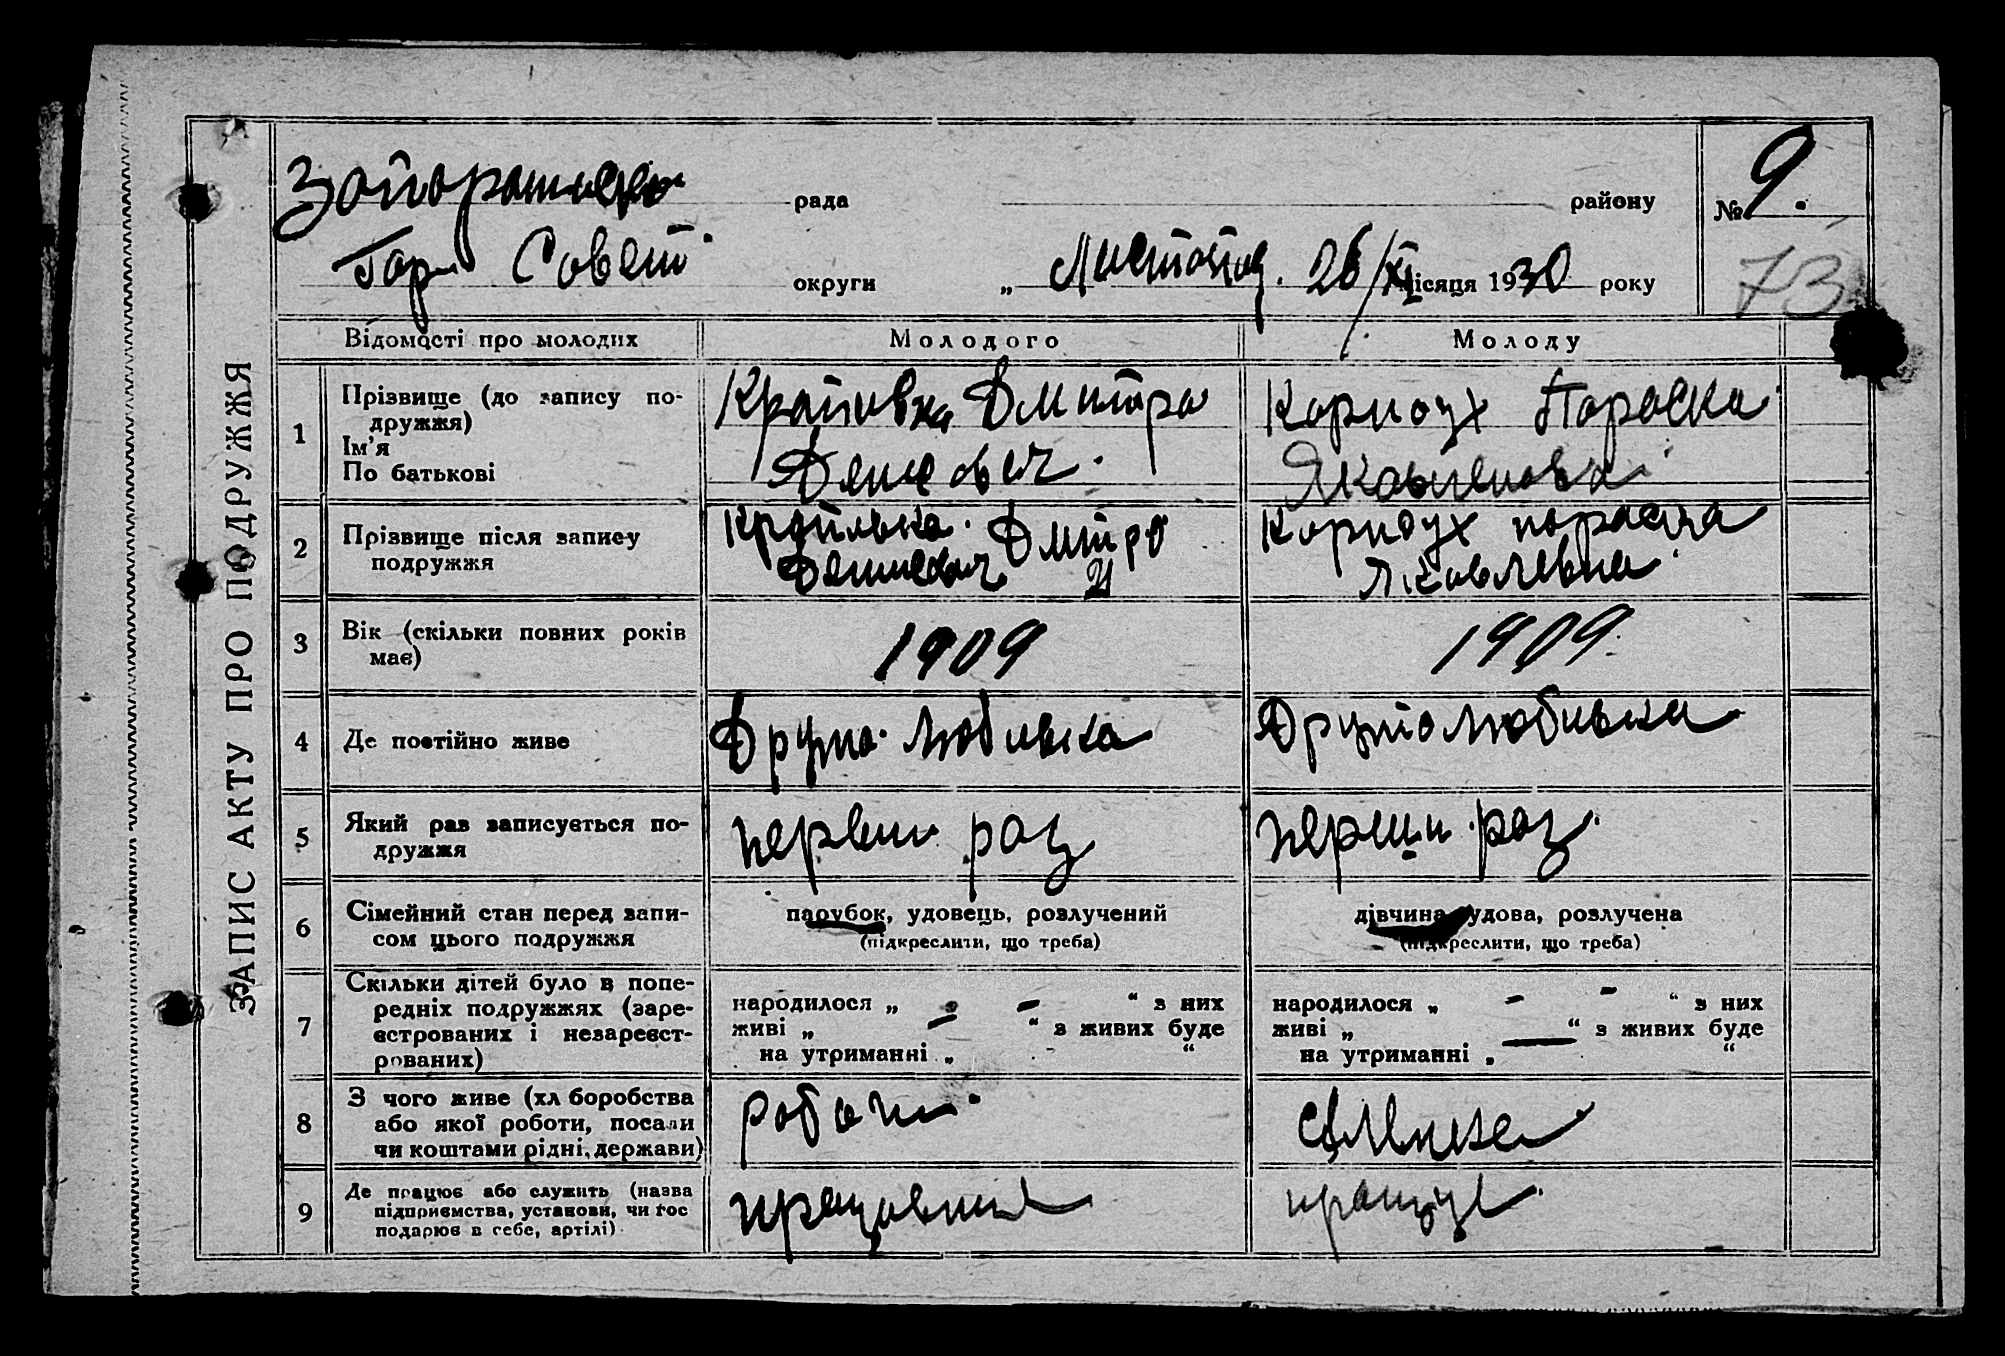 ЗАПИС АКТУ ПРО ПОДРУЖЖЯ
рада
району
№ 9.
Гор Совет округи
„ Листопад. 26/XI місяця 1930 року
73
Відомості про молодих
Молодого
Молоду
1
Прізвище (до запису по-
дружжя)
Ім'я
По батькові
Крапивка Дмитро
Карпоух Параска
2
Прізвище після запису
подружжя
Дмітро
Карпоух параска
Яковлевна
3
Вік (скільки повних років
має)
1909
1909.
4
Де постійно живе
Друшолюбивка
5
Який раз записується по-
дружжя
первии раз
перши раз.
6
Сімейний стан перед запи-
сом цього подружжя
парубок, удовець, розлучений
(підкреслити, що треба)
дівчина, удова, розлучена
(підкреслити, що треба)
7
Скільки дітей було в попе-
редніх подружжях (заре-
єстрованих і незареєст-
рованих)
народилося „ - “ з них
живі „ - “ з живих буде
на утриманні „ “
народилося „ - - “ з них
живі „ — “ з живих буде
на утриманні „ “
8
З чого живе (хл боробства
або якої роботи, посади
чи коштами рідні, держави)
робочи
9
Де працює або служить (назва
підприємства, установи, чи гос
подарює в себе, артілі)
працює